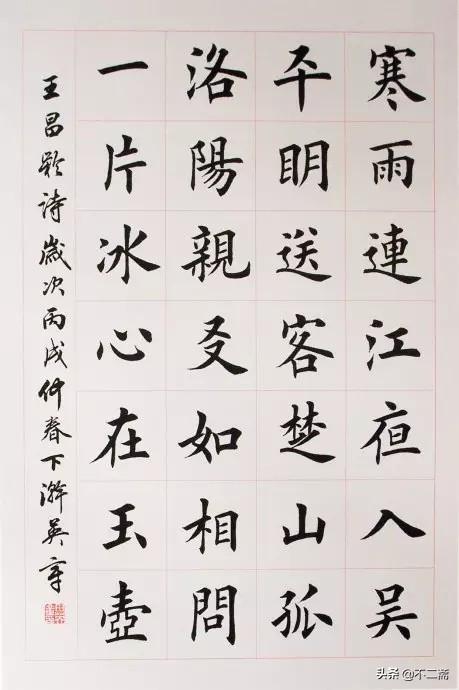 寒雨連江夜入吴
平明送客楚山孤
洛陽親友如相問
一片冰心在玉壺
王昌齡詩歲次丙戌仲春下澣
头条 @不二斋